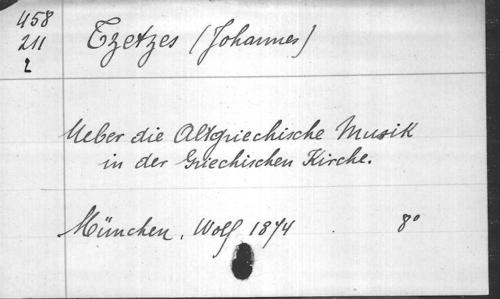 458
211
2
Tzetzes (Johannes)
Ueber die Altgriechische Musik
in der Griechischen Kirche.
München, Wolf 1874 8°